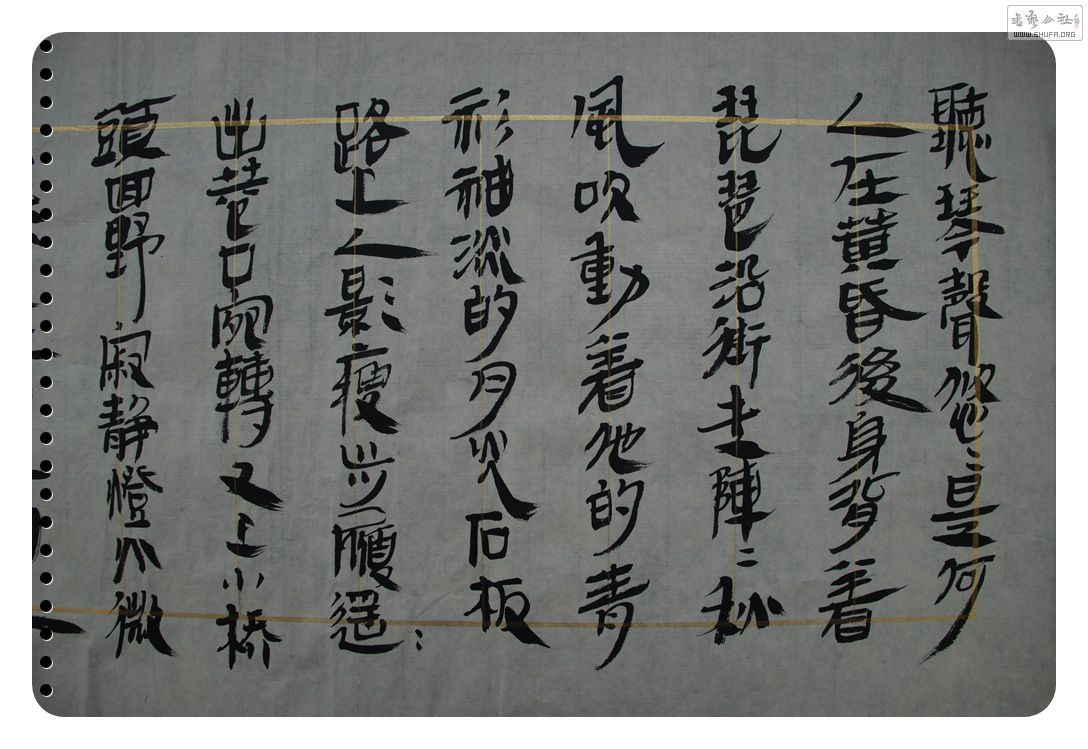 聽琴聲悠〻是何
人在黃昏後身背着
琵琶沿街走陣〻秋
風吹動着他的青
衫袖淡的月光石板
路上人影瘦步履遥〻
出巷口宛轉又上小橋
頭四野寂靜燈火微
書藝公社
WWW.SHUFA.ORG